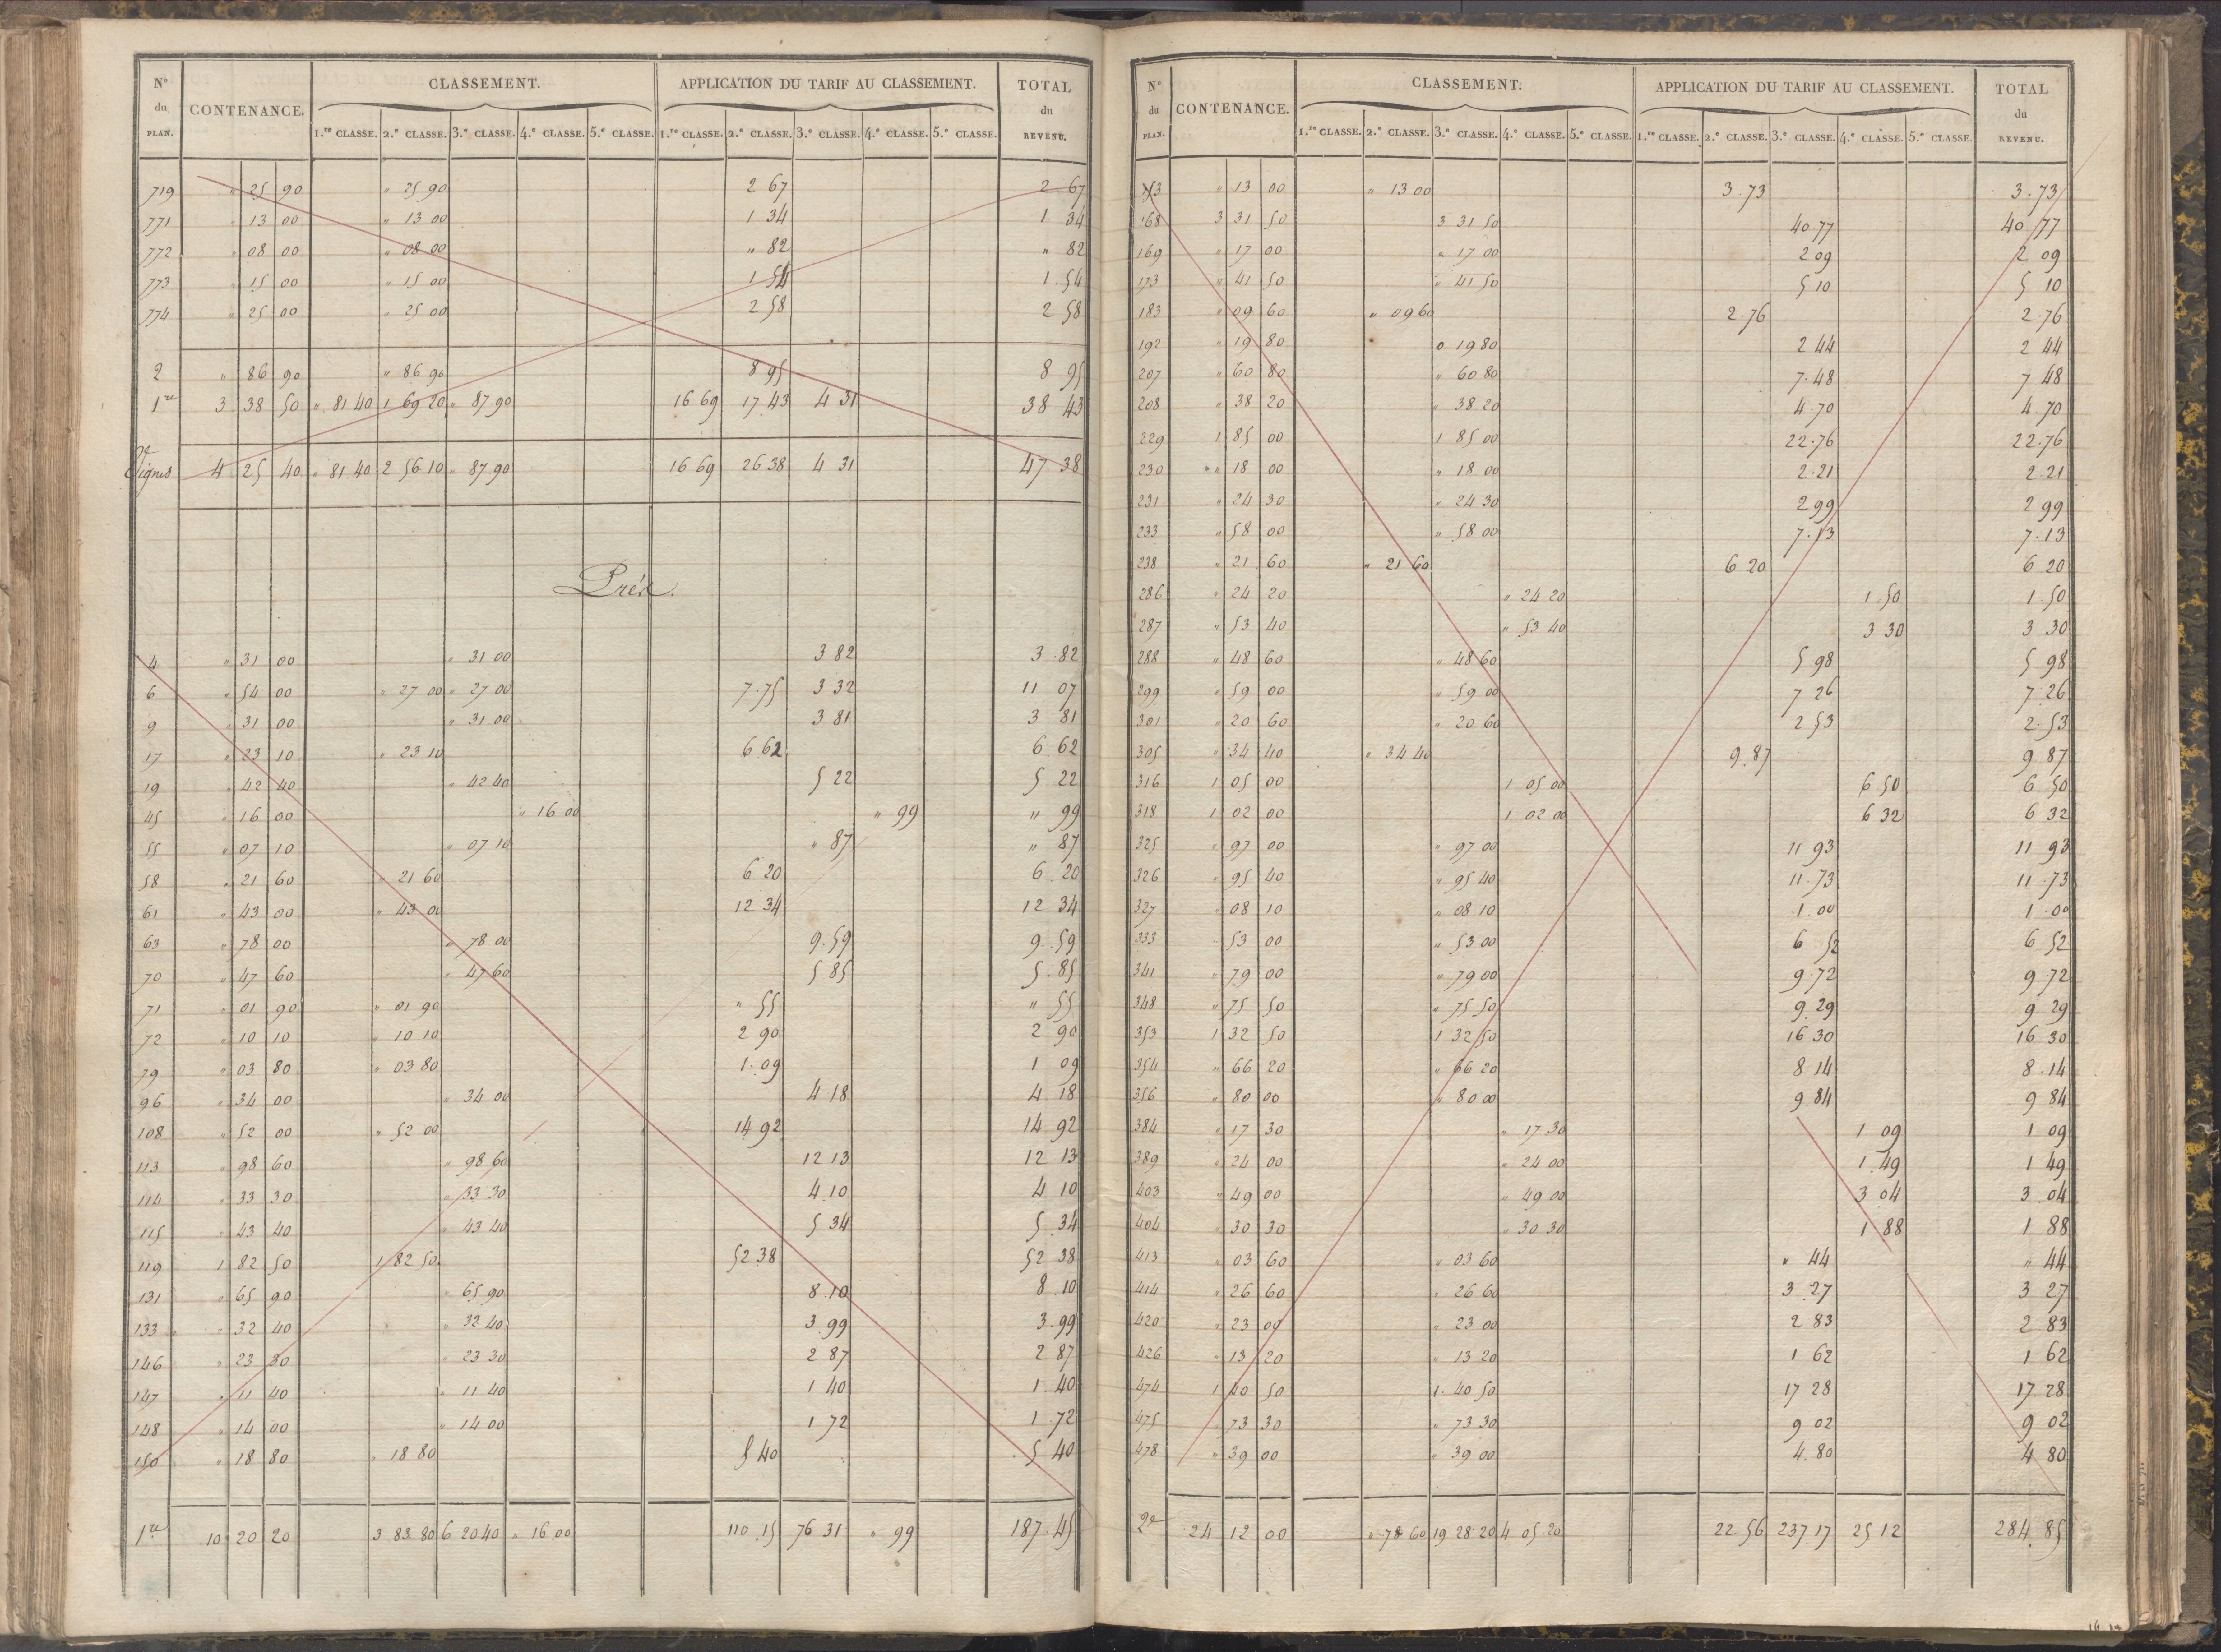 N° du PLAN. CONTENANCE. CLASSEMENT. APPLICATION DU TARIF AU CLASSEMENT. TOTAL du REVENU.
1.re CLASSE. 2.e CLASSE. 3.e CLASSE. 4.e CLASSE. 5.e CLASSE. 1.re CLASSE. 2.e CLASSE. 3.e CLASSE. 4.e CLASSE. 5.e CLASSE.
719 " 25 90 " 25 90 2 67 2 67
771 " 13 00 " 13 00 1 34 1 34
772 " 08 00 " 08 00 " 82 " 82
773 " 15 00 " 15 00 1 54 1 54
774 " 25 00 " 25 00 2 58 2 58
2 " 86 90 " 86 90 8 95 8 95
1re 3 38 50 " 81 40 1 69 20 " 87 90 16 69 17 43 4 31 38 43
Vignes 4 25 40 " 81 40 2 56 10 " 87 90 16 69 26 38 4 31 47 38
Prés.
4 " 31 00 " 31 00 3 82 3 82
6 " 54 00 " 27 00 " 27 00 7 75 3 32 11 07
9 " 31 00 " 31 00 3 81 3 81
17 " 23 10 " 23 10 6 62 6 62
19 " 42 40 " 42 40 5 22 5 22
45 " 16 00 " 16 00 " 99 " 99
55 " 07 10 " 07 10 " 87 " 87
58 " 21 60 " 21 60 6 20 6 20
61 " 43 00 " 43 00 12 34 12 34
63 " 78 00 " 78 00 9 59 9 59
70 " 47 60 " 47 60 5 85 5 85
71 " 01 90 " 01 90 " 55 " 55
72 " 10 10 " 10 10 2 90 2 90
79 " 03 80 " 03 80 1 09 1 09
96 " 34 00 " 34 00 4 18 4 18
108 " 52 00 " 52 00 14 92 14 92
113 " 98 60 " 98 60 12 13 12 13
114 " 33 30 " 33 30 4 10 4 10
115 " 43 40 " 43 40 5 34 5 34
119 1 82 50 1 82 50 52 38 52 38
131 " 65 90 " 65 90 8 10 8 10
133 " 32 40 " 32 40 3 99 3 99
146 " 23 30 " 23 30 2 87 2 87
147 " 11 40 " 11 40 1 40 1 40
148 " 14 00 " 14 00 1 72 1 72
150 " 18 80 " 18 80 5 40 5 40
1re 10 20 20 3 83 80 6 20 40 " 16 00 110 15 76 31 " 99 187 45
N° du PLAN. CONTENANCE. CLASSEMENT. APPLICATION DU TARIF AU CLASSEMENT. TOTAL du REVENU.
1.re CLASSE. 2.e CLASSE. 3.e CLASSE. 4.e CLASSE. 5.e CLASSE. 1.re CLASSE. 2.e CLASSE. 3.e CLASSE. 4.e CLASSE. 5.e CLASSE.
153 " 13 00 " 13 00 3 73 3 73
168 3 31 50 3 31 50 40 77 40 77
169 " 17 00 " 17 00 2 09 2 09
173 " 41 50 " 41 50 5 10 5 10
183 " 09 60 " 09 60 2 76 2 76
192 " 19 80 0 19 80 2 44 2 44
207 " 60 80 " 60 80 7 48 7 48
208 " 38 20 " 38 20 4 70 4 70
229 1 85 00 1 85 00 22 76 22 76
230 " 18 00 " 18 00 2 21 2 21
231 " 24 30 " 24 30 2 99 2 99
233 " 58 00 " 58 00 7 13 7 13
238 " 21 60 " 21 60 6 20 6 20
286 " 24 20 " 24 20 1 50 1 50
287 " 53 40 " 53 40 3 30 3 30
288 " 48 60 " 48 60 5 98 5 98
299 " 59 00 " 59 00 7 26 7 26
301 " 20 60 " 20 60 2 53 2 53
305 " 34 40 " 34 40 9 87 9 87
316 1 05 00 1 05 00 6 50 6 50
318 1 02 00 1 02 00 6 32 6 32
325 " 97 00 " 97 00 11 93 11 93
326 " 95 40 " 95 40 11 73 11 73
327 " 08 10 " 08 10 1 00 1 00
333 " 53 00 " 53 00 6 52 6 52
341 " 79 00 " 79 00 9 72 9 72
348 " 75 50 " 75 50 9 29 9 29
353 1 32 50 1 32 50 16 30 16 30
354 " 66 20 " 66 20 8 14 8 14
356 " 80 00 " 80 00 9 84 9 84
384 " 17 30 " 17 30 1 09 1 09
389 " 24 00 " 24 00 1 49 1 49
403 " 49 00 " 49 00 3 04 3 04
404 " 30 30 " 30 30 1 88 1 88
413 " 03 60 " 03 60 " 44 " 44
414 " 26 60 " 26 60 3 27 3 27
420 " 23 00 " 23 00 2 83 2 83
426 " 13 20 " 13 20 1 62 1 62
474 1 40 50 1 40 50 17 28 17 28
475 " 73 30 " 73 30 9 02 9 02
478 " 39 00 " 39 00 4 80 4 80
2e 24 12 00 " 78 60 19 28 20 4 05 20 22 56 237 17 25 12 284 85